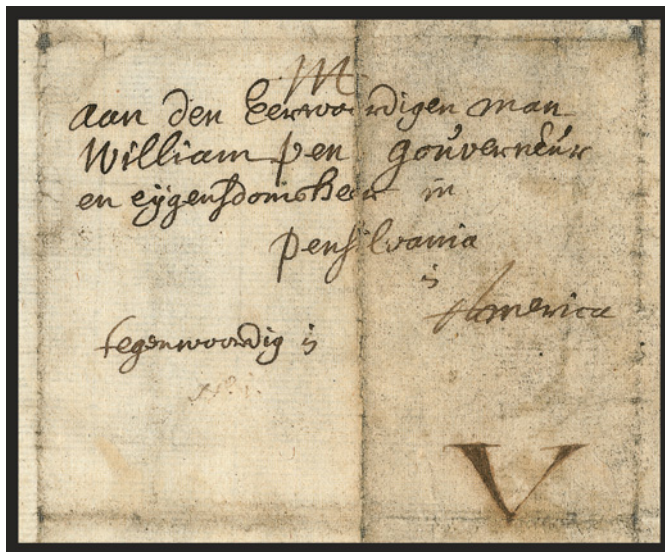 M
aan den Eerwoordigen man
William pen gouverneur
en eijgensdomsheer in
pensilvania
in
America
tegenwoordig in
V